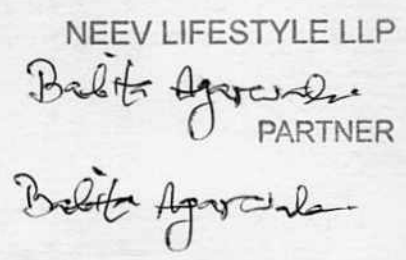 NEEV LIFESTYLE LLP
Babita Agarwala
PARTNER
Babita Agarwala